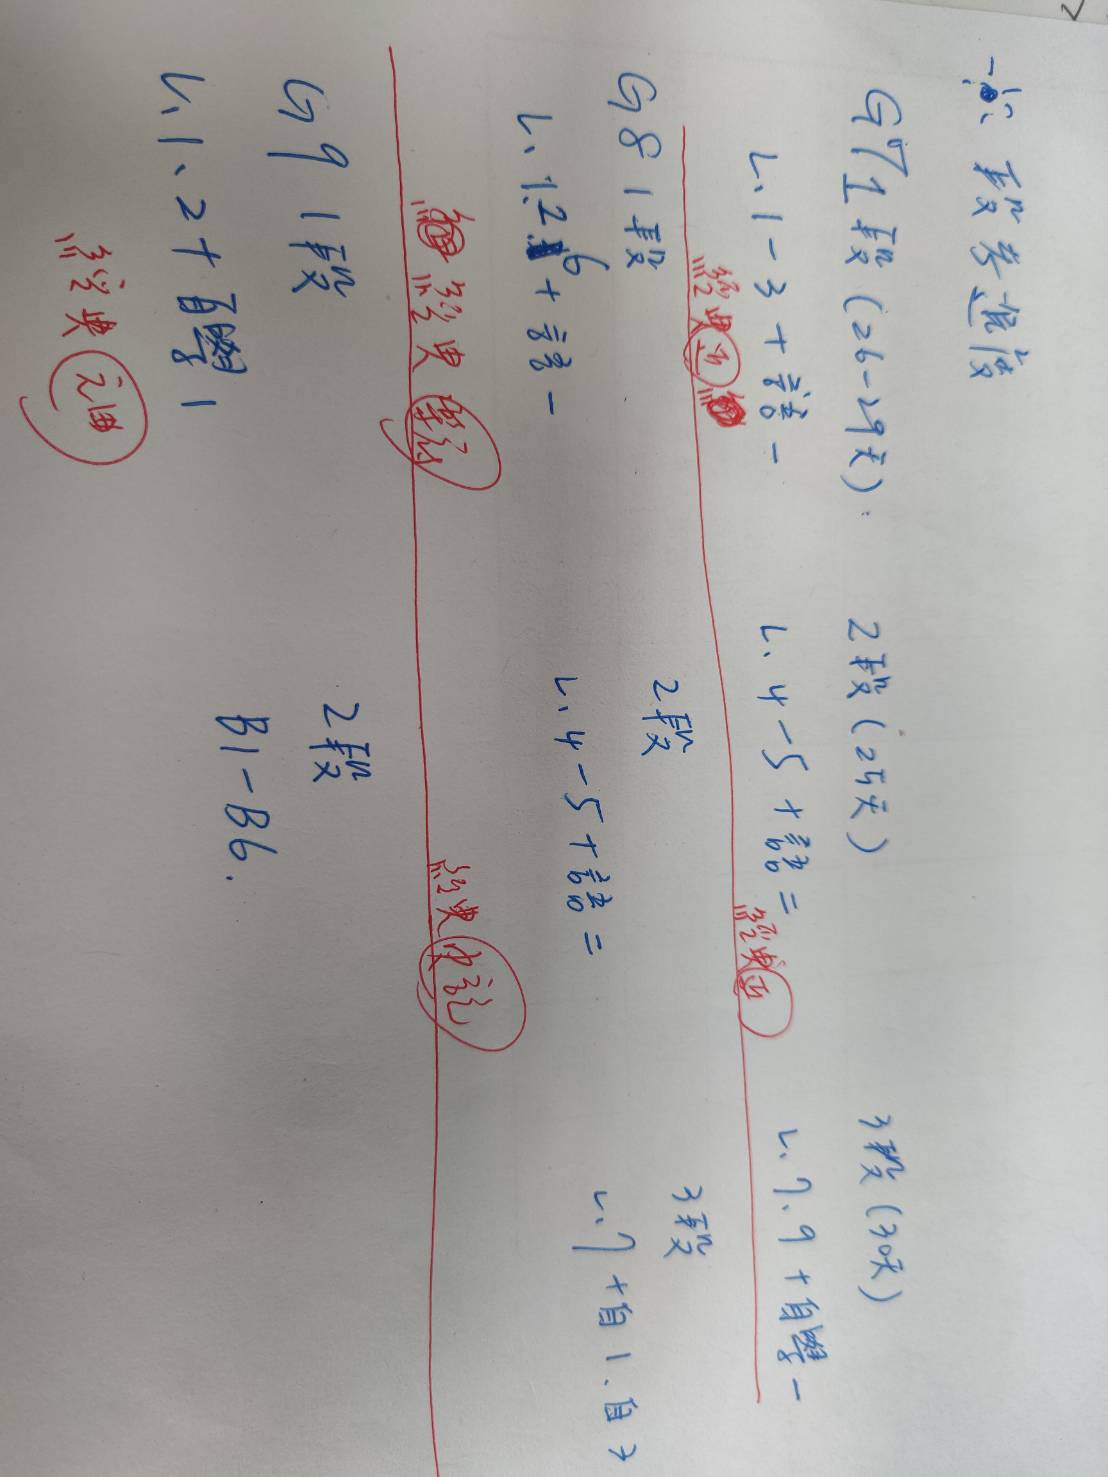 一、段考進度
G7 1段(26-29天):
2段(25天)
3段(30天)
L.1-3+語一
L.4-5+語二
L.7.9+自學一
經典
經典
G8 1段
2段
3段
L.1.2.6+語一
L.4-5+語二
L.7+自1、自2
經典
經典史記
G9 1段
2段
L.1.2+自學1
B1-B6.
經典元曲